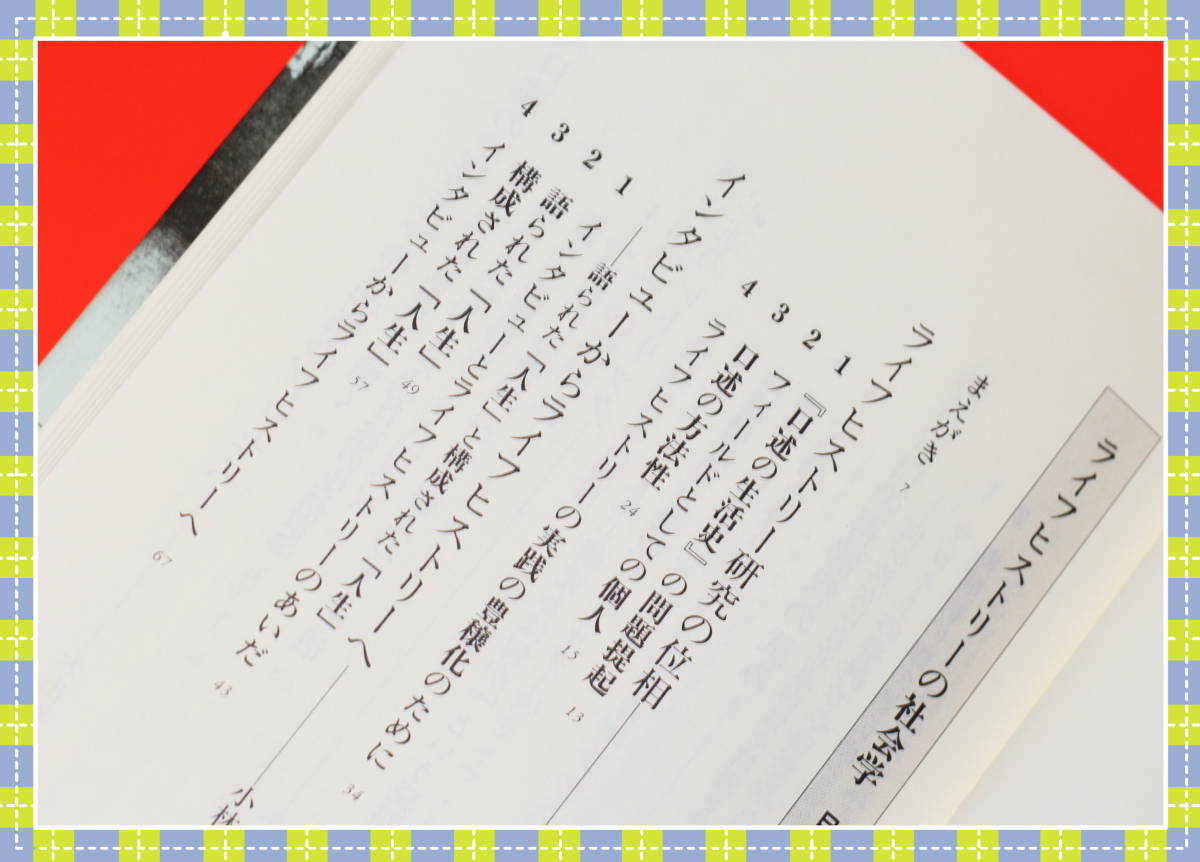 ライフヒストリーの社会学
まえがき 7
ライフヒストリー研究の位相
1 『口述の生活史』の問題提起 13
2 フィールドとしての個人 15
3 口述の方法性 24
4 ライフヒストリーの実践の豊穣化のために 34
インタビューからライフヒストリーへ 小林
——語られた「人生」と構成された「人生」
1 インタビューとライフヒストリーのあいだ 43
2 語られた「人生」 49
3 構成された「人生」 57
4 インタビューからライフヒストリーへ 67